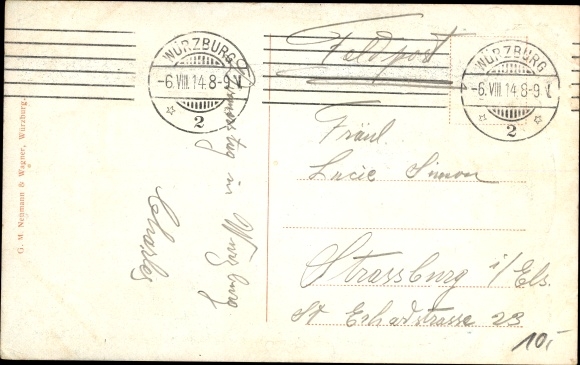 WÜRZBURG
-6.VIII.14.8-9
2
WÜRZBURG
-6.VIII.14 8-9
2
Feldpost
Fräul.
Lucie Simon
Strassburg i/Els.
St Erhadstrasse 23
10,-
in Würzburg
Charles
G. M. Neumann & Wagner, Würzburg.